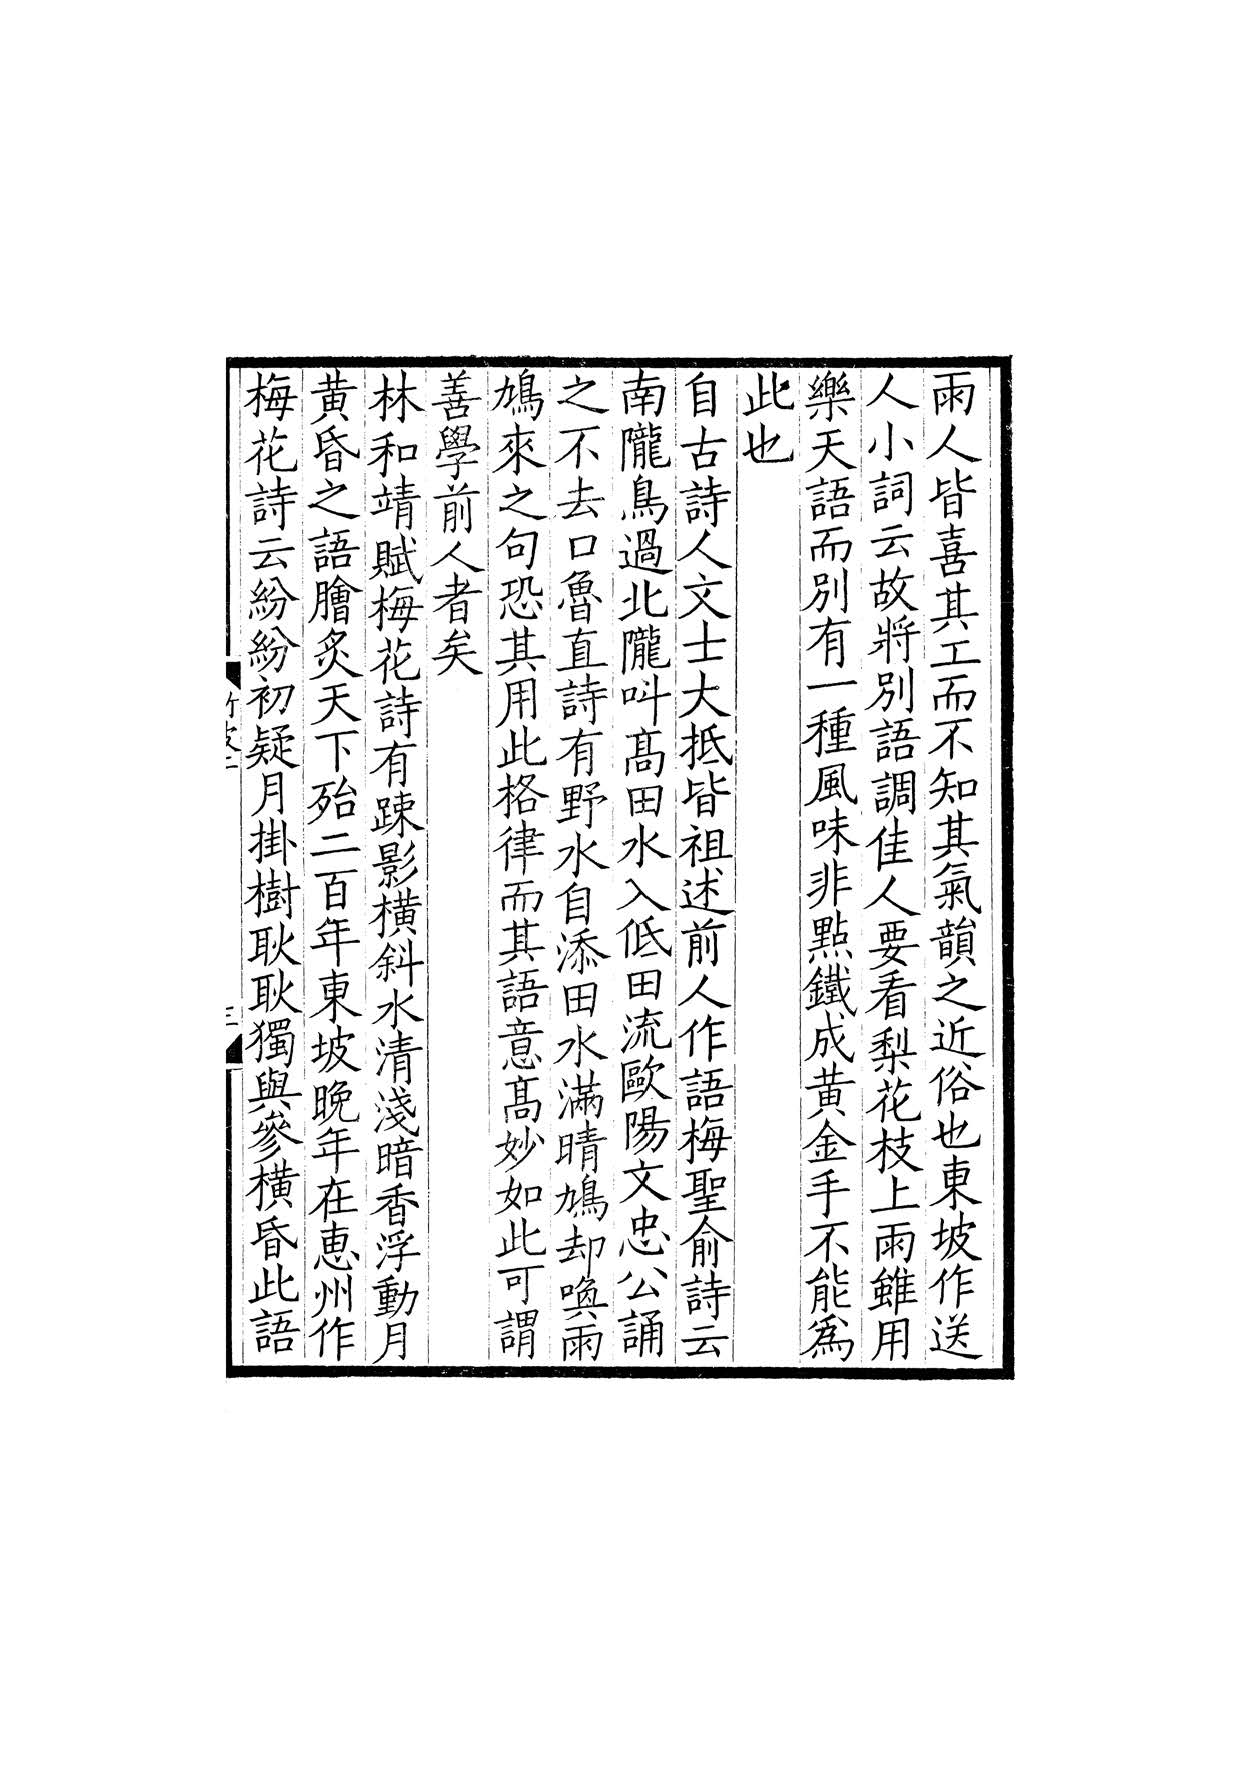 雨人皆喜其工而不知其氣韻之近俗也東坡作送
人小詞云故將別語調佳人要看梨花枝上雨雖用
樂天語而別有一種風味非點鐵成黃金手不能爲
此也
自古詩人文士大抵皆祖述前人作語梅聖俞詩云
南隴鳥過北隴叫髙田水入低田流歐陽文忠公誦
之不去口魯直詩有野水自添田水滿晴鳩却喚雨
鳩來之句恐其用此格律而其語意髙妙如此可謂
善學前人者矣
林和靖賦梅花詩有踈影橫斜水清淺暗香浮動月
黃昏之語膾炙天下殆二百年東坡晚年在惠州作
梅花詩云紛紛初疑月掛樹耿耿獨與參橫昏此語